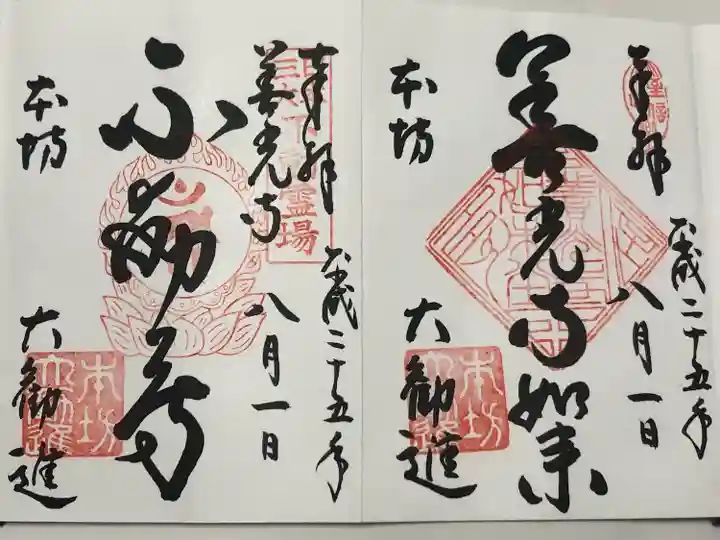 奉拝
平成二十五年
八月一日
善光寺如来
本坊
大勧進
本坊
大勧進
奉拝
善光寺
平成二十五年
八月一日
不動尊
本坊
大勧進
本坊
大勧進